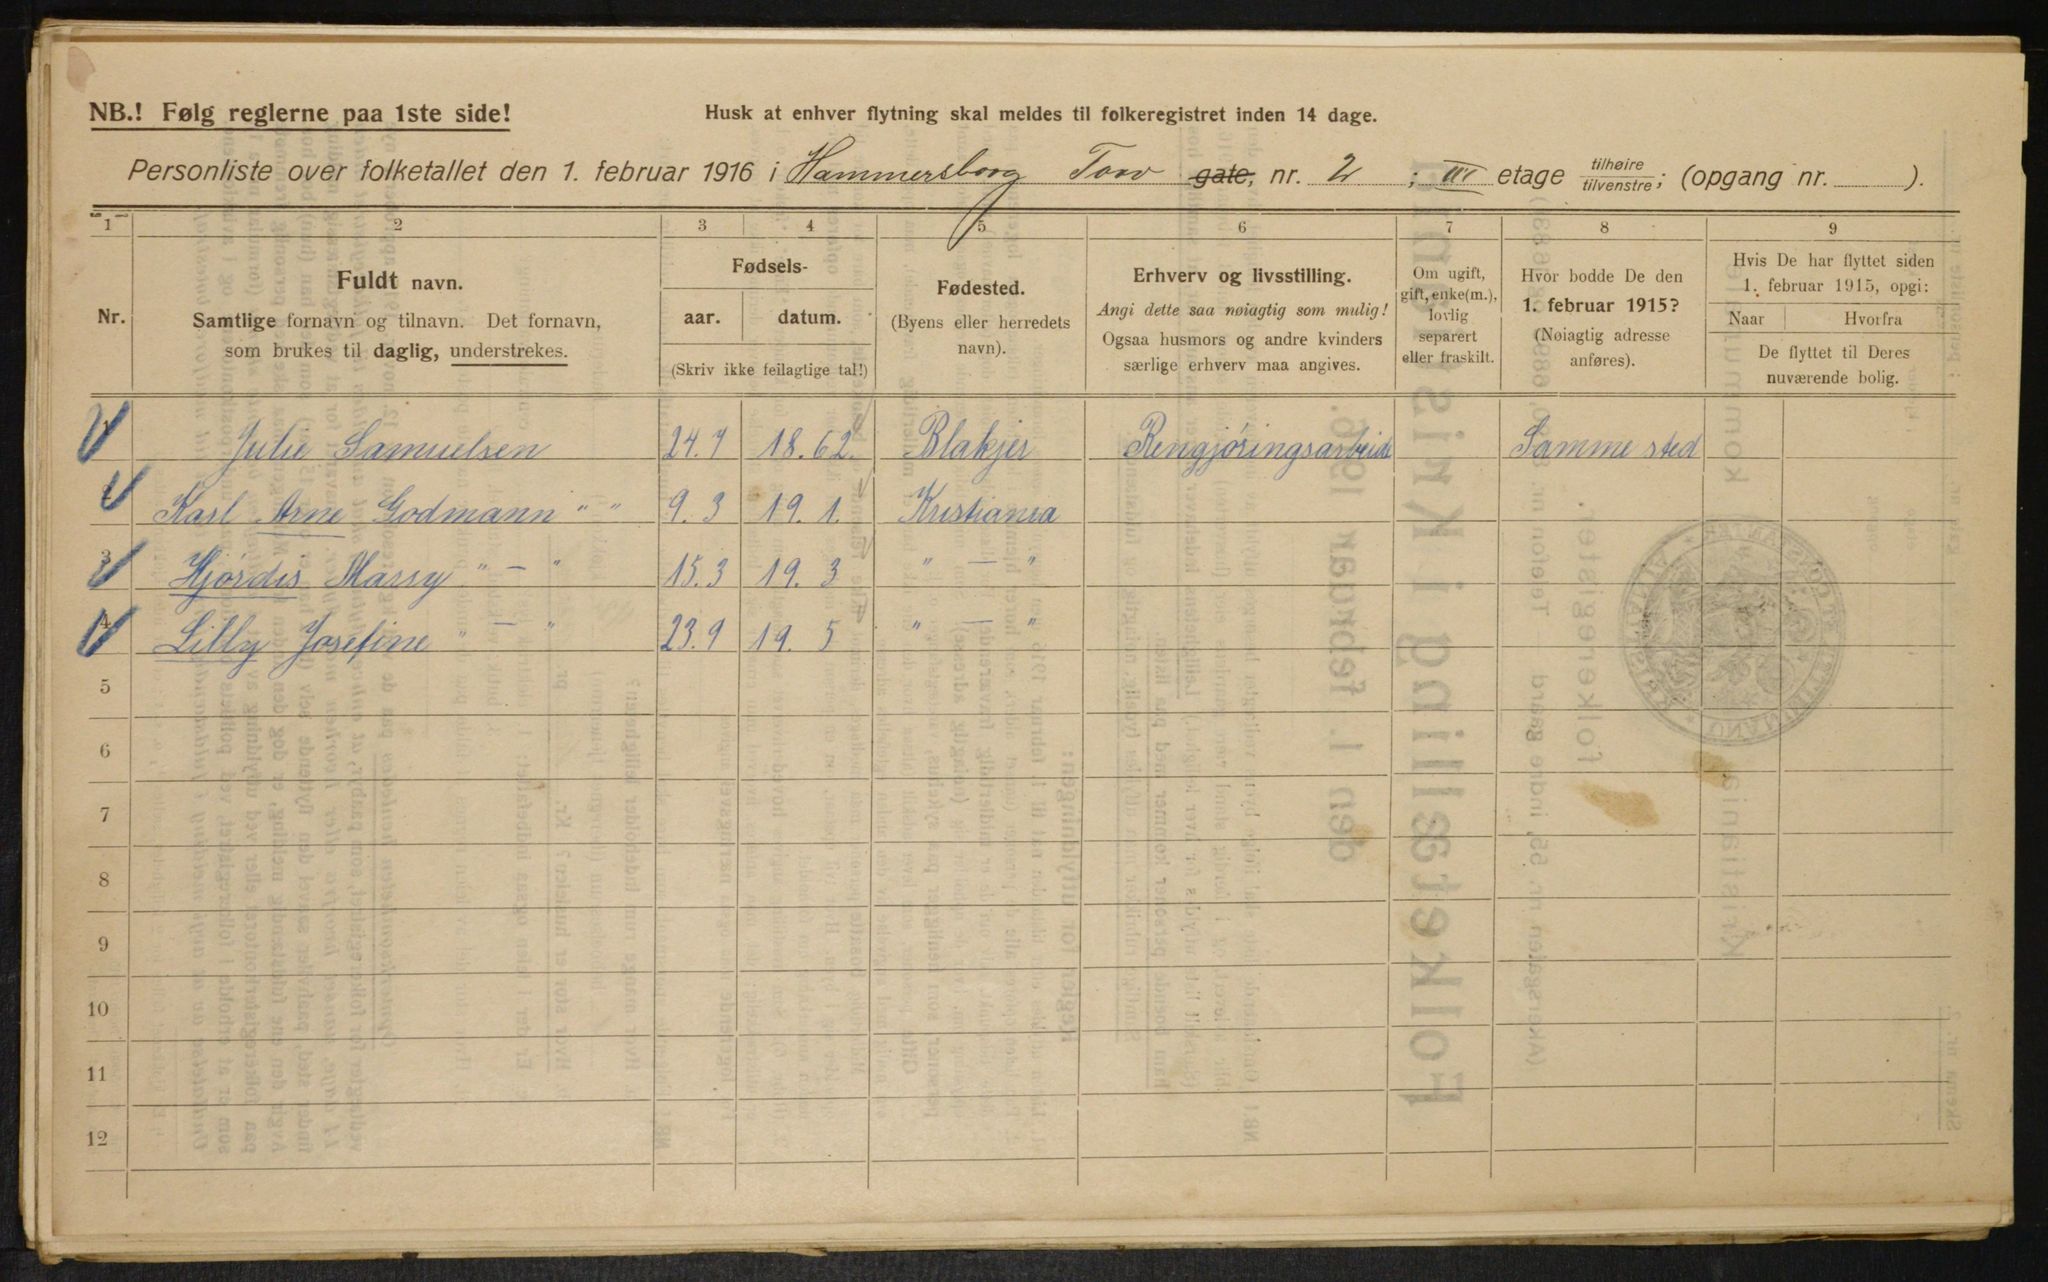 NB.! Følg reglerne paa 1ste side!
Husk at enhver flytning skal meldes til folkeregistret inden 14 dage.
Personliste over folketallet den 1. februar 1916 i Hammersborg Torv gate, nr. 2 ; III etage tilhøire/tilvenstre; (opgang nr. ).
1 2 3 4 5 6 7 8 9
Nr.
Fuldt navn.
Samtlige fornavn og tilnavn. Det fornavn,
som brukes til daglig, understrekes.
Fødsels-
aar. datum.
(Skriv ikke feilagtige tal!)
Fødested.
(Byens eller herredets
navn).
Erhverv og livsstilling.
Angi dette saa nøiagtig som mulig!
Ogsaa husmors og andre kvinders
særlige erhverv maa angives.
Om ugift,
gift, enke(m.),
lovlig
separert
eller fraskilt.
Hvor bodde De den
1. februar 1915?
(Nøiagtig adresse
anføres).
Hvis De har flyttet siden
1. februar 1915, opgi:
Naar Hvorfra
De flyttet til Deres
nuværende bolig.
1 Julie Samuelsen 24.7 18.62. Blakjer Rengjøringsarbeide Samme sted
2 Karl Arne Godmann " " 9.3 19.1. Kristiania
3 Hjørdis Marry " — " 15.3 19.3 " — "
4 Lilly Josefine " — " 23.9 19.5 " — "
5
6
7
8
9
10
11
12